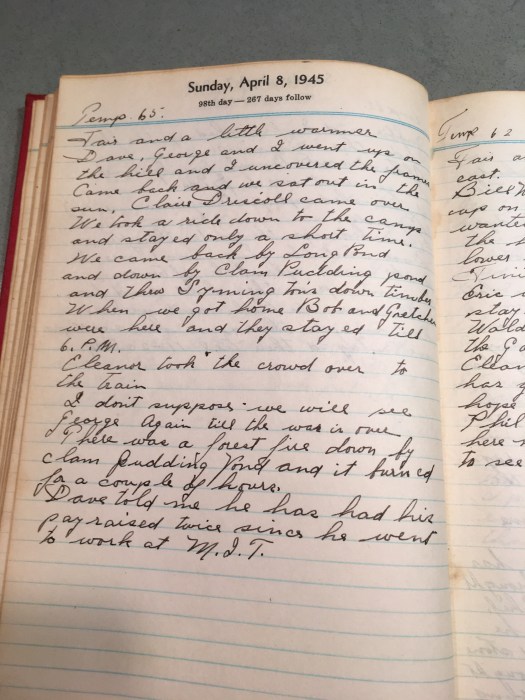 Sunday, April 8, 1945
98th day — 267 days follow
Temp 65.
Fair and a little warmer
Dave, George and I went up on
the hill and I uncovered the frames
Came back and we sat out in the
sun. Claire Driscoll came over
We took a ride down to the camp
and stayed only a short time.
We came back by Long Pond
and down by Clam Pudding pond
and threw Symington's down timber
When we got home Bob and Gretchen
were here and they stayed till
6. P.M.
Eleanor took the crowd over to
the train
I don't suppose we will see
George Again till the war is over
There was a forest fire down by
clam pudding Pond and it burned
for a couple of hours.
Dave told me he has had his
pay raised twice since he went
to work at M.I.T.
Temp 62
Fair a
cast.
Bill
up on
wante
the
lower
Eric
stay
the
has
hope
Phil
here
to see